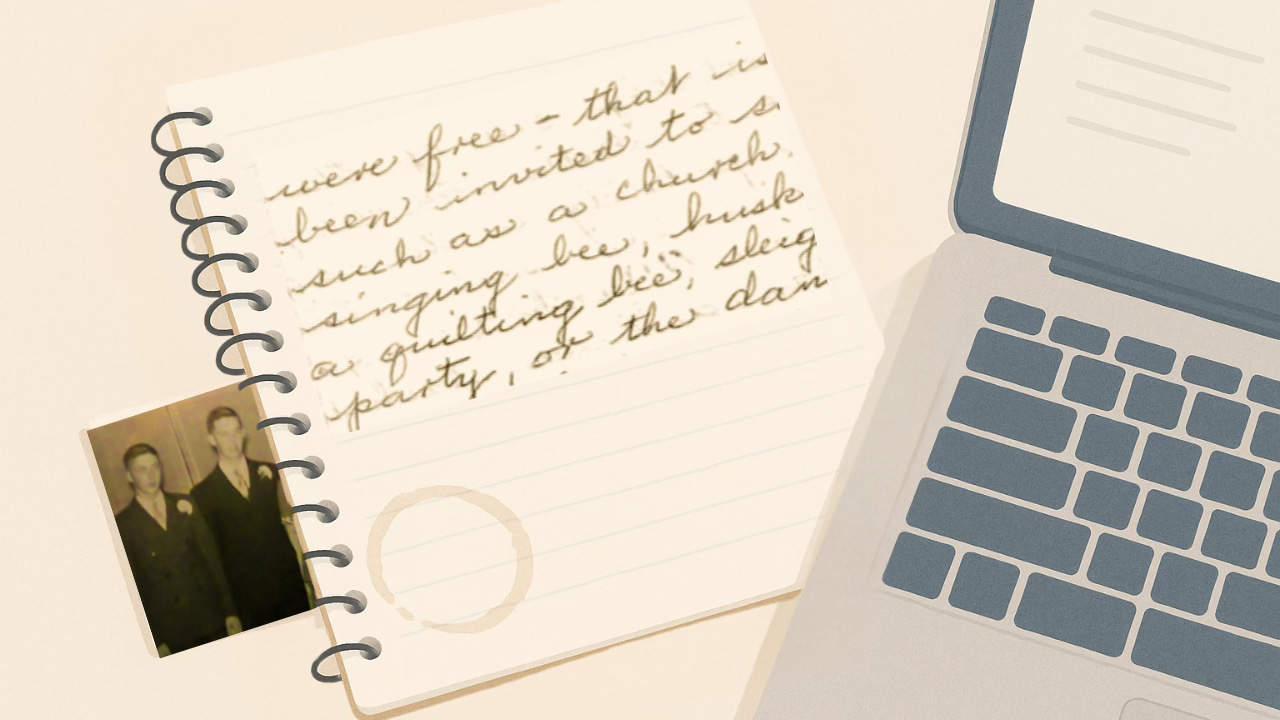 were free - that is
been invited to s
such as a church
singing bee, husk
a quilting bee, sleig
party, or the dan